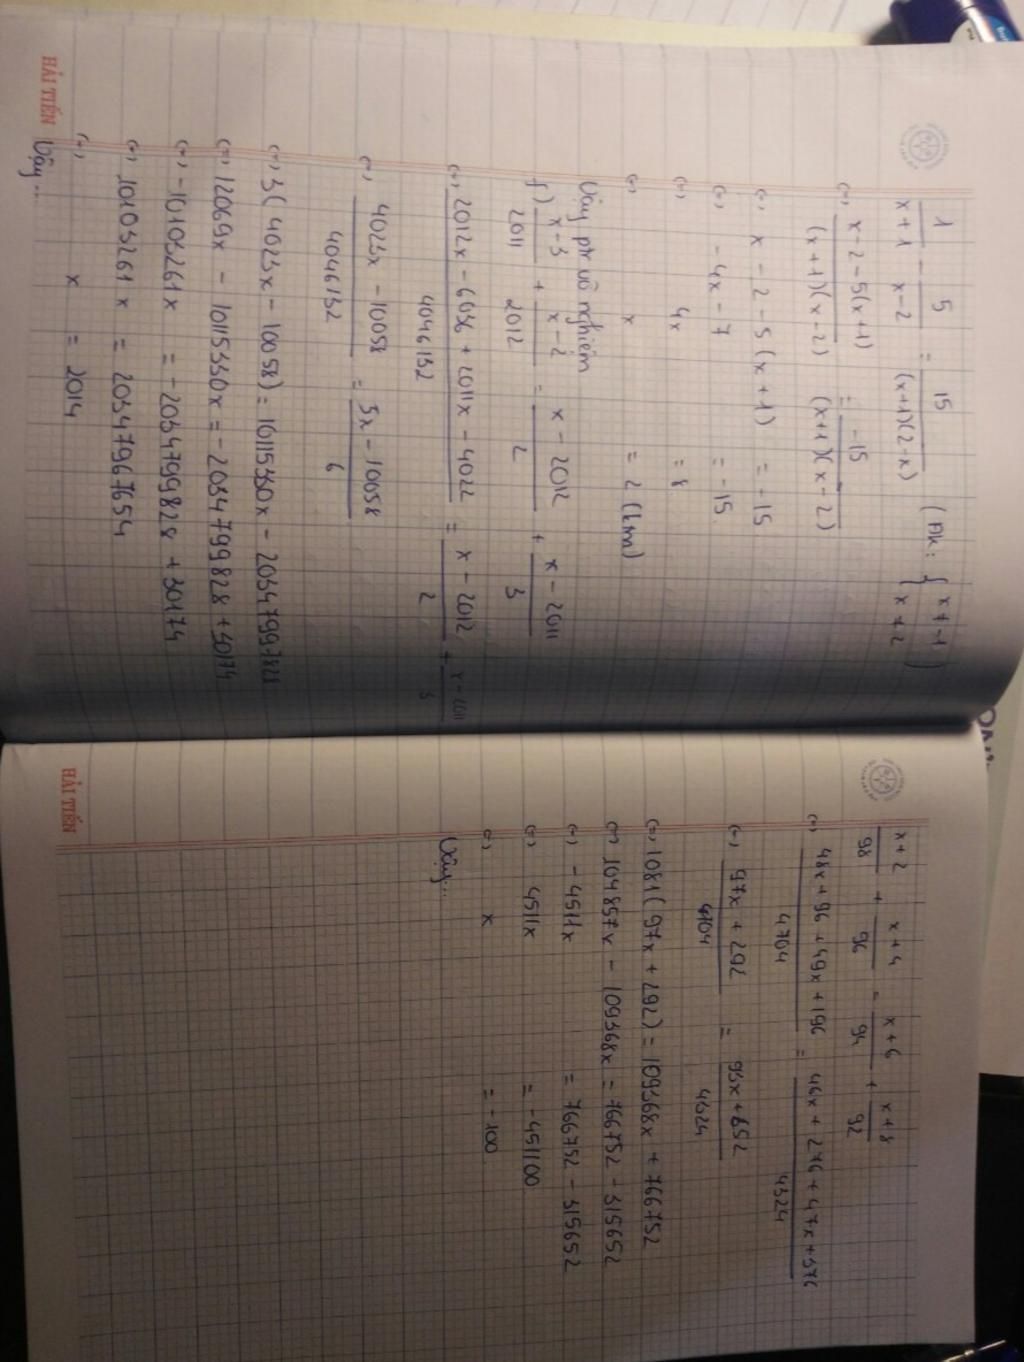 1/(x+1) - 5/(x-2) = 15/((x+1)(2-x)) (ĐK: { x ≠ -1 { x ≠ 2 )
(=) (x-2-5(x+1))/((x+1)(x-2)) = -15/((x+1)(x-2))
(=) x - 2 - 5(x+1) = -15
(=) -4x - 7 = -15
(=) 4x = 8
(=) x = 2 (ktm)
Vậy pt vô nghiệm
f) (x-3)/2011 + (x-2)/2012 = (x-2012)/2 + (x-2011)/3
(=) (2012x - 6036 + 2011x - 4022)/4046132 = (x-2012)/2 + (x-2011)/3
(=) (4023x - 10058)/4046132 = (5x - 10058)/6
(=) 3(4023x - 10058) = 10115330x - 20347997828
(=) 12069x - 10115330x = -20347999828 + 30174
(=) -10103261x = -20347999828 + 30174
(=) 10103261x = 20347967654
(=) x = 2014
Vậy...
HẢI TIẾN
(x+2)/98 + (x+4)/96 = (x+6)/94 + (x+8)/92
(=) (48x + 96 + 49x + 196)/4704 = (46x + 276 + 47x + 376)/4324
(=) (97x + 292)/4704 = (93x + 652)/4324
(=) 1081(97x + 292) = 109368x + 766752
(=) 104857x - 109368x = 766752 - 315652
(=) -4511x = 766752 - 315652
(=) 4511x = -451100
(=) x = -100
Vậy...
HẢI TIẾN